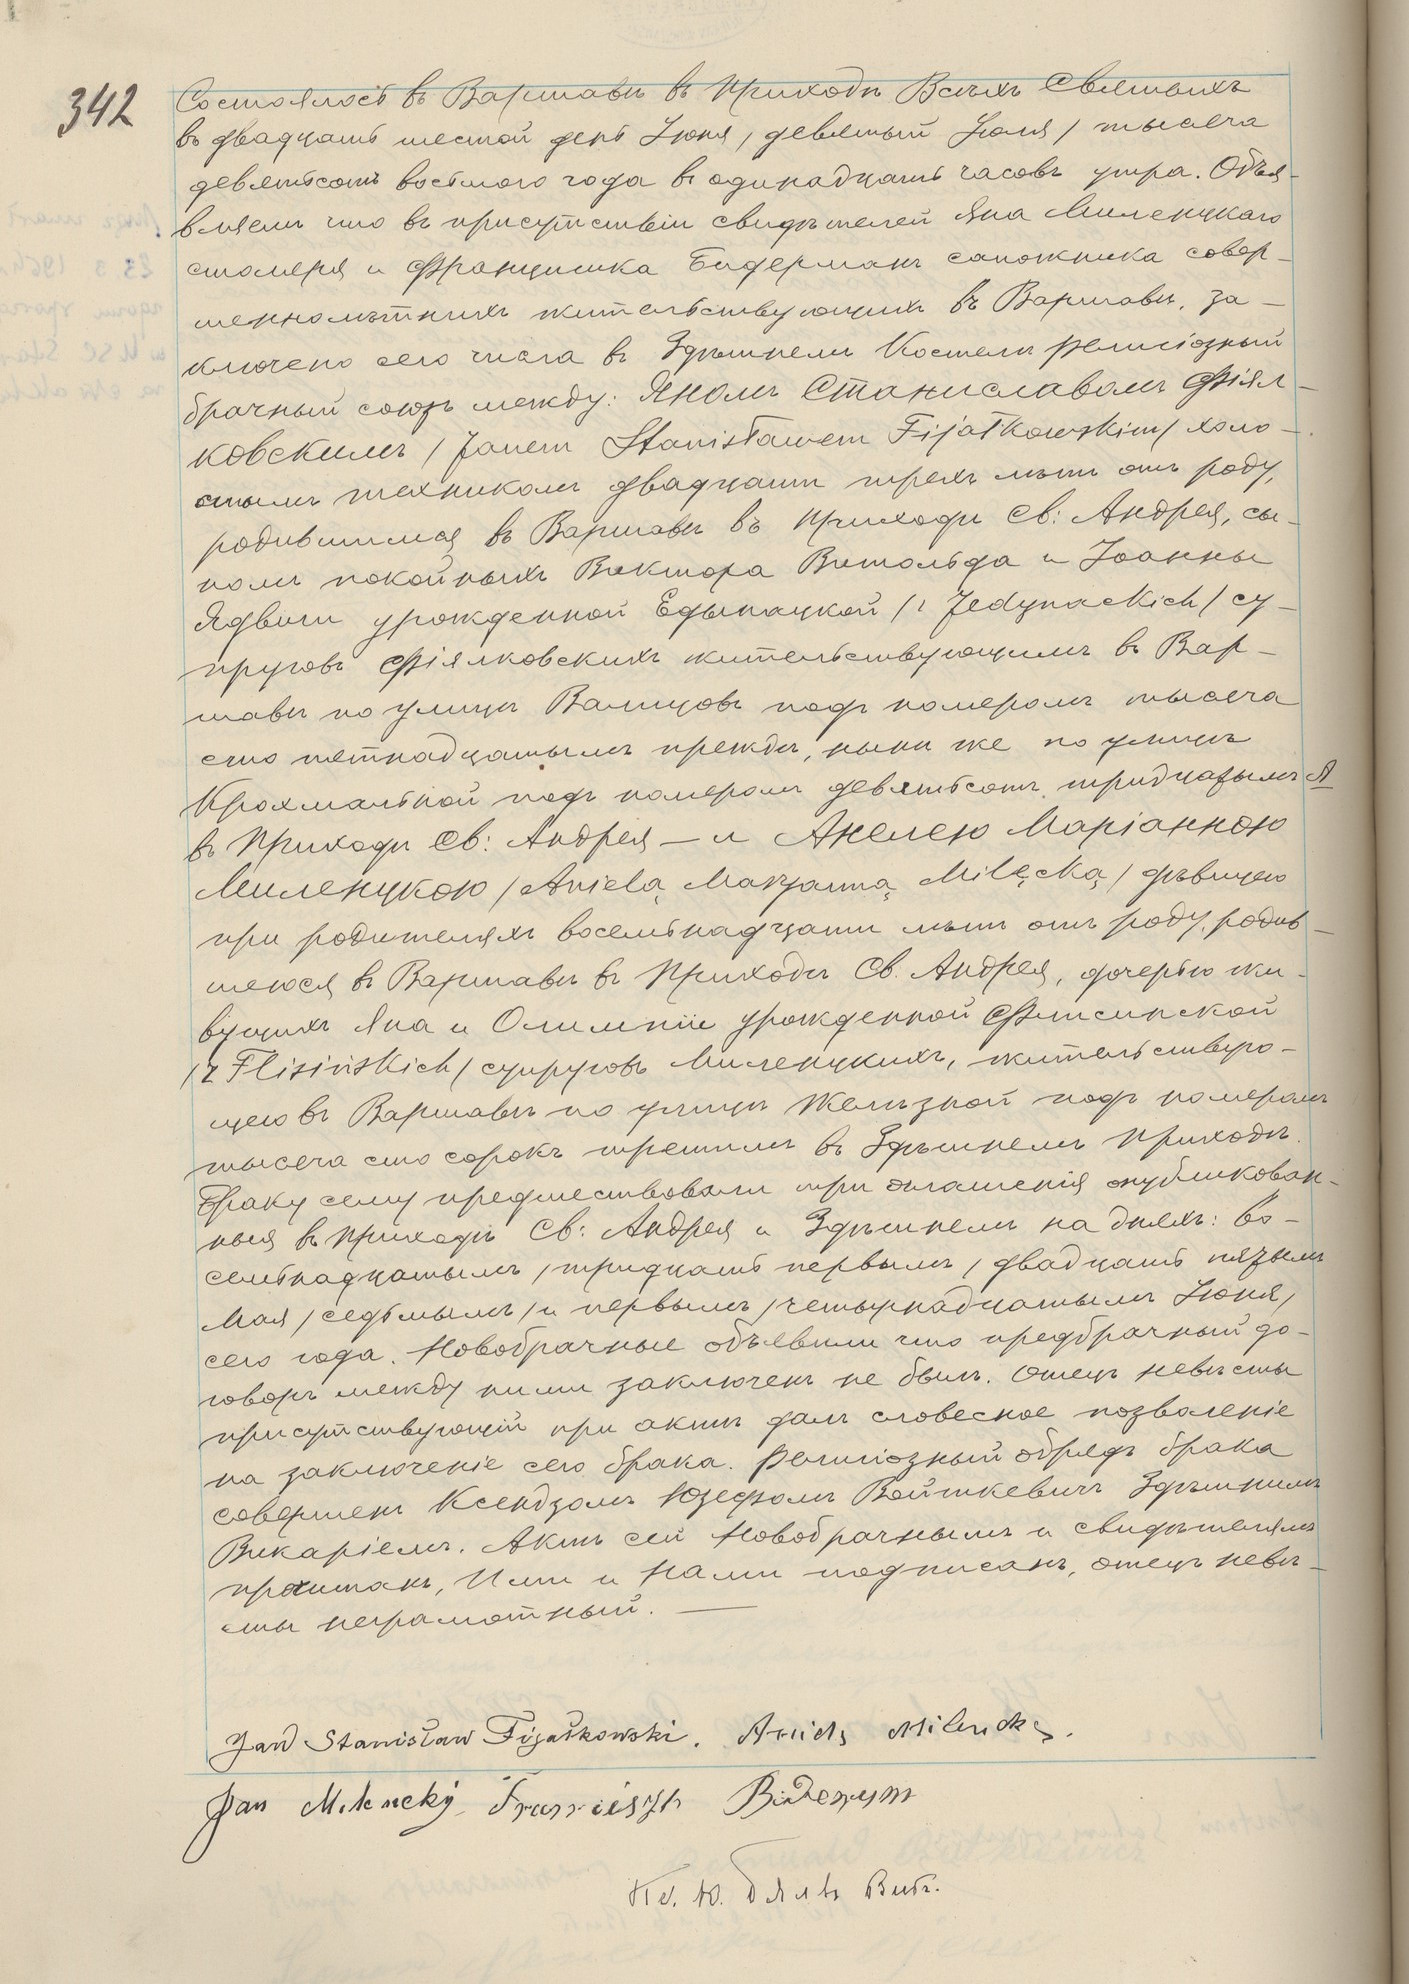 342
Состоялось въ Варшавѣ въ Приходѣ Всѣхъ Святыхъ
въ двадцать шестой день Іюня / девятый Іюля / тысяча
девятьсотъ восьмого года въ одинадцать часовъ утра. Объя-
вляемъ что въ присутствіи свидѣтелей Яна Миленцкаго
столяра и Францишка Бидерманъ сапожника совер-
шеннолѣтнихъ жительствующихъ въ Варшавѣ, за-
ключено сего числа въ Здѣшнемъ Костелѣ религіозный
брачный союзъ между: Яномъ Станиславомъ Фіял-
ковскимъ / Janem Stanisławem Fijałkowskim / холо-
стымъ техникомъ двадцати трехъ лѣтъ отъ роду,
родившимся въ Варшавѣ въ Приходѣ Св: Андрея, сы-
номъ покойныхъ Виктора Витольда и Іоанны
Ядвиги урожденной Едынацкой / z Jedynackich / су-
пруговъ Фіялковскихъ жительствующимъ въ Вар-
шавѣ по улицѣ Валицовъ подъ номеромъ тысяча
сто пятнадцатымъ прежде, нынѣ же по улицѣ
Крохмальной подъ номеромъ девятьсотъ тридцатымъ А
въ Приходѣ Св: Андрея — и Анелею Маріанною
Миленцкою / Anielą Maryanną Milęcką / дѣвицею
при родителяхъ восемнадцати лѣтъ отъ роду, родив-
шеюся въ Варшавѣ въ Приходѣ Св. Андрея, дочерью жи-
вущихъ Яна и Олимпіи урожденной Флисинской
/ z Flisińskich / супруговъ Миленцкихъ, жительствую-
щею въ Варшавѣ по улицѣ Желѣзной подъ номеромъ
тысяча сто сорокъ третимъ въ Здѣшнемъ Приходѣ.
Браку сему предшествовали три оглашенія опубликован-
ныя въ Приходѣ Св: Андрея и Здѣшнемъ на дняхъ: во-
семнадцатымъ / тридцать первымъ / двадцать пятымъ
Мая / седьмымъ / и первымъ / четырнадцатымъ Іюня /
сего года. Новобрачные объявили что предбрачный до-
говоръ между ними заключенъ не былъ. Отецъ невѣсты
присутствующій при актѣ далъ словесное позволеніе
на заключеніе сего брака. Религіозный обрядъ брака
совершенъ Ксендзомъ Юзефомъ Войткевичъ Здѣшнимъ
Викаріемъ. Актъ сей Новобрачнымъ и свидѣтелямъ
прочитанъ, Ими и Нами подписанъ, отецъ невѣ-
сты неграмотный. —
Jan Stanisław Fijałkowski. Aniela Milencka.
Jan Milencky Franciszk Biderman